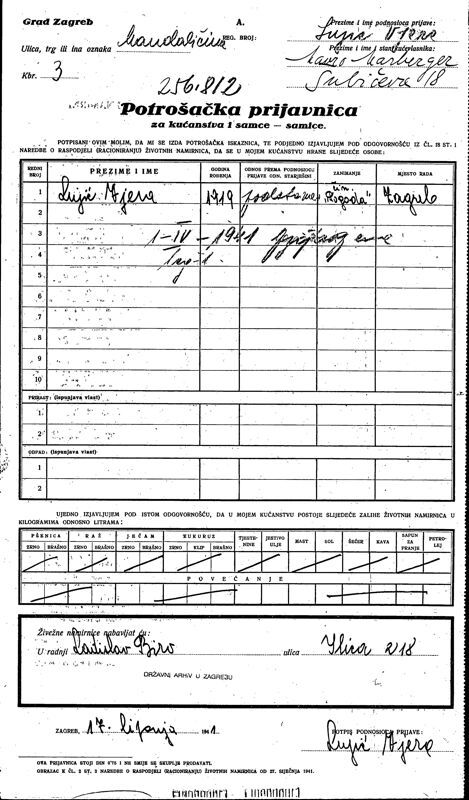 Grad Zagreb
A.
REG. BROJ:
Prezime i ime podnosioca prijave:
Ulica, trg ili ina oznaka
Prezime i ime stanoučevlasnika:
Kbr. 3
Šubićeva 18
256.812
Potrošačka prijavnica
za kućanstva i samce — samice.
POTPISANI OVIM MOLIM, DA MI SE IZDA POTROŠAČKA ISKAZNICA, TE PODJEDNO IZJAVLJUJEM POD ODGOVORNOŠĆU IZ ČL. 18 ST. 1
NAREDBE O RASPODJELI (RACIONIRANJU) ŽIVOTNIH NAMIRNICA, DA SE U MOJEM KUĆANSTVU HRANE SLIJEDEĆE OSOBE:
REDNI BROJ PREZIME I IME GODINA ROĐENJA ODNOS PREMA PODNOSIOCU PRIJAVE ODN. STARJEŠINI ZANIMANJE MJESTO RADA
1 Lujić Njera 1919 Zagreb
2
3 1-IV-1941
4
5
6
7
8
9
10
PRIRAST: (ispunjava vlast)
1
2
OTPAD: (ispunjava vlast)
1
2
UJEDNO IZJAVLJUJEM POD ISTOM ODGOVORNOŠĆU, DA U MOJEM KUĆANSTVU POSTOJE SLIJEDEĆE ZALIHE ŽIVOTNIH NAMIRNICA U
KILOGRAMIMA ODNOSNO LITRAMA:
PŠENICA RAŽ JEČAM KUKURUZ TJESTENINE JESTIVO ULJE MAST SOL ŠEĆER KAVA SAPUN ZA PRANJE PETROLEJ
ZRNO BRAŠNO ZRNO BRAŠNO ZRNO BRAŠNO ZRNO KLIP BRAŠNO
POVEĆANJE
Živežne namirnice nabavljat ću:
U radnji Ladislav Biro ulica Ilica 218
DRŽAVNI ARHIV U ZAGREBU
ZAGREB, 17. lipanja 1941.
POTPIS PODNOSIOCA PRIJAVE:
Lujić Njera
OVA PRIJAVNICA STOJI DIN 0'75 I NE SMIJE SE SKUPLJE PRODAVATI.
OBRAZAC K ČL. 2 ST. 2 NAREDBE O RASPODJELI (RACIONIRANJU) ŽIVOTNIH NAMIRNICA OD 27. SIJEČNJA 1941.